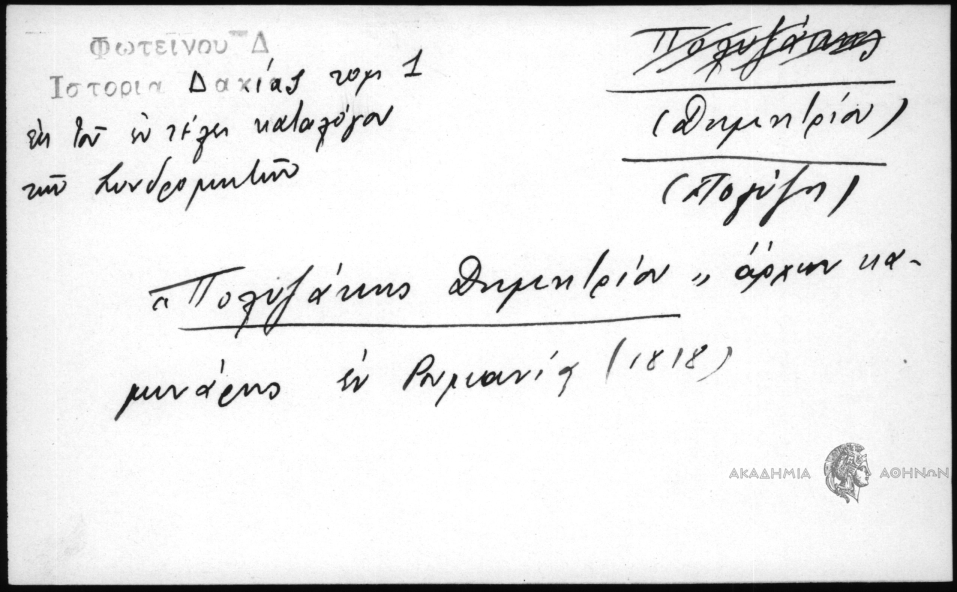 Φωτεινου Δ
Ιστορια Δακίας τομ 1
εκ του εν τέλει καταλόγου
των Συνδρομητών
Πολυζάκης
(Δημητρίου)
(Πολύζη)
"Πολυζάκης Δημητρίου" άρχων κα-
μινάρης εν Ρουμανία (1818)
ΑΚΑΔΗΜΙΑ ΑΘΗΝΩΝ